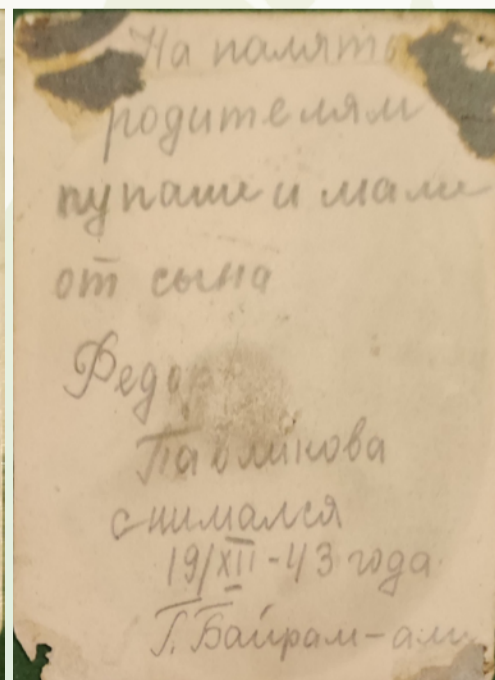 На память
родителям
пупаше и маме
от сына
Федора
Павликова
снимался
19/XII-43 года
Г. Байрам-али